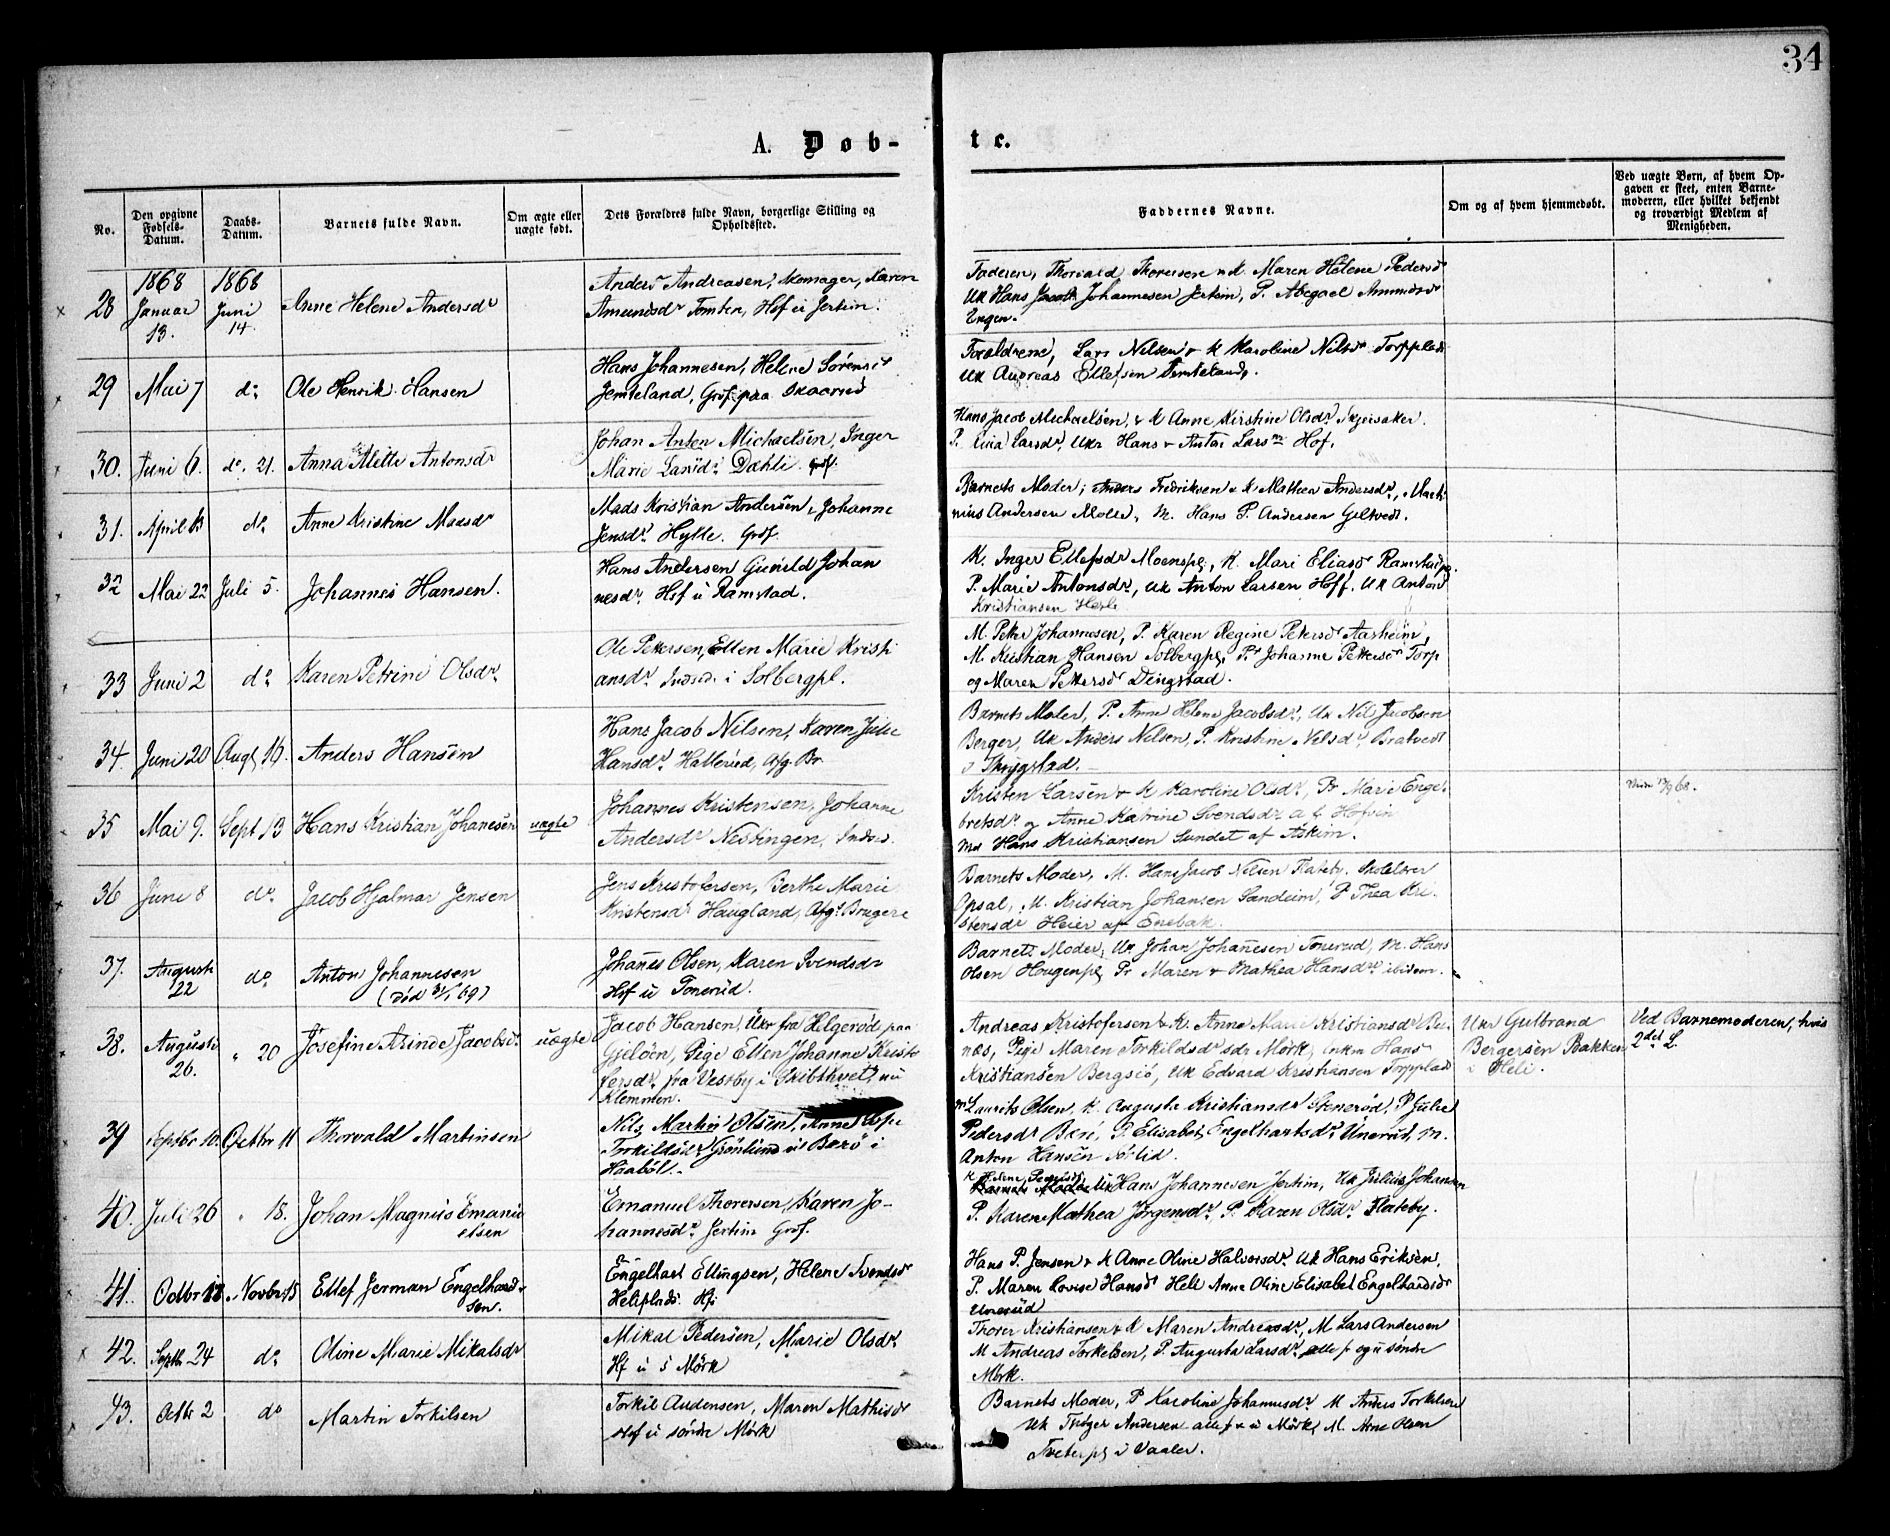 34
A. Døb-
te.
No.
Den opgivne Fødsels-Datum.
Daabs-Datum.
Barnets fulde Navn.
Om ægte eller uægte født.
Dets Forældres fulde Navn, borgerlige Stilling og Opholdssted.
Faddernes Navne.
Om og af hvem hjemmedøbt.
Ved uægte Børn, af hvem Opgaven er skeet, enten Barnemoderen, eller hvilket bekjendt og troværdigt Medlem af Menigheden.
1868
1868
28
Januar 13.
Juni 14.
Anne Helene Andersdr
Anders Andreasen, Skomager, Karen
Amundsdr Tomten, Hsf i Jertim.
Faderen, Thorvald Thoresen & K. Maren Helene Pedersdr
Uk Hans Jacob Johannesen Jertim, P. Abegael Amundsdr
Engen.
29
Mai 7
do
Ole Henrik Hansen
Hans Johannesen, Helene Sørensdr
Jemteland, Grdf. paa Skaarud
Forældrene, Lars Nilsen & K Karoline Nilsdr Torpplads
Uk Andreas Ellefsen Jemteland.
30.
Juni 6.
do. 21.
Anna Mette Antonsdr
Johan Anton Michaelsen, Inger
Marie Larsdr Dæhli. Grdf.
Hans Jacob Michaelsen, & K Anne Kirstine Olsdr
P. Lina Larsdr, Ukr Hans & Antoi Larsen Hof.
31.
April 13
do
Anne Kristine Madsdr
Mads Kristian Andersen, Johanne
Jensdr. Hytte. Grdf.
Barnets Moder, Anders Fredriksen & K Mathea Andersdr, Mathi-
nius Andersen Moll, M. Hans P. Andersen Geltvedt.
32
Mai 22
Juli 5.
Johannes Hansen.
Hans Andersen Gunild Johan
nesdr. Hsf i Ramstad.
K. Inger Ellefsdr Moenspl, K. Mari Eliasdr Ramstadpl.
P. Marie Antonsdr, Uk Anton Larsen Hoff. Uk Anton
Kristiansen Heli
33
Juni 2
do
Karen Petrine Olsdr.
Ole Pettersen, Ellen Marie Kristi
ansdr. Inds. i Solbergpl.
M. Peter Johannesen, P. Karen Regine Petersdr Aarheim,
M. Kristian Hansen Solbergpl, P. Johanne Pettersdr Torp
og Maren Pettersdr Dingstad.
34.
Juni 20
Augt 16.
Anders Hansen
Hans Jacob Nilsen, Karen Julie
Hansdr. Hallerud, Afg. Br.
Barnets Moder, P. Anne Helene Jacobsdr, Uk Nils Jacobsen
Berger, Uk Anders Nilsen, P. Kristine Nilsdr, Bratvedt
35
Mai 9.
Sept 13
Hans Kristian Johanesen
uægte
Johannes Kristensen, Johanne
Andersdr Nestingen, Inds.
Kristen Larsen & K Karoline Olsdr, P. Marie Enge-
bretsdr og Anne Katrine Svendsdr a l Hofvin
Hans Kristiansen Sundet af Askim.
13/9 68.
36
Juni 8
do.
Jacob Hjalmar Jensen
Jens Kristofersen, Berthe Marie
Kristensdr Haugland, Afgs Brugere
Barnets Moder, M. Hans Jacob Nilsen Flateby. Skolelærer
Opsal, M. Kristian Johansen Sandeim, P Thea Kri-
stensdr Heier af Enebak.
37.
August 22
do.
Anton Johannesen
(død 31/1 69)
Johanes Olsen, Karen Svendsdr
Hsf i Tonerud.
Barnets Moder, Uk Johan Johanesen Tonerud, M. Hans
Olsen Haugenpl Pr Maren & Mathea Hansdr ibidem.
38.
August 26.
" 20
Josefine Arinde Jacobsdr.
uægte
Jacob Hansen, Ukr fra Helgerød paa
Gjeløen, Pige Ellen Johanne Kristo
fersdr. fra Vestby i Skibthvet, nu
Klemmen.
Andreas Kristofersen & K. Anne Marie Kristiansdr Re-
næs, Pige Maren Torkildsdr sdr Mørk, Hans
Kristiansen Bergsjø, Uk Edvard Kristiansen Torpplads
Ukr Gulbrand
Bergersen Bakken
i Heli.
Ved Barnemoderen, hvis
2det L.
39
Septbr 10.
Octbr 11
Thorvald Martinsen
Nils Martin Olsen, Anne
Torkildsdr Grønlund u/ Berø i
Haabøl.
M. Laurits Olsen, K. Auguste Kristiansdr Stenerød, P Julie
Pedersdr Berø, P. Elisabet Engelhartsdr, Unerud, M.
Anton Hansen Sølid.
40.
Juli 26
" 18.
Johan Magnus Emanu
elsen
Emanuel Thoresen, Karen Jo-
hannesdr Jertim Grdf.
K Helene
Barnets Moder Uk Hans Johannesen Jertim, Uk Julius Johansen
P. Karen Mathea Jørgensdr, P. Karen Olsdr Flateby.
41.
Octbr 18
Novbr 15
Ellef Jerman Engelhard-
sen.
Engelhart Ellingsen, Helene Svendsdr
Heliplads. Hf.
Hans P. Jensen & K Anne Oline Halvorsdr. Uk Hans Eriksen,
P. Maren Lovise Hansdr Heli Anne Oline Elisabet Engelhardsdr
Unerud
42.
Septbr 24
do
Oline Marie Mikalsdr
Mikal Pedersen, Marie Olsdr.
Hf i S Mørk
Thorer Kristiansen & K Maren Andreasdr, M Lars Andersen
M Andreas Torkelsen, P. Augusta Larsdr, alle p og u søndre
Mørk.
43.
Octbr 2
do
Martin Torkilsen
Torkil Audensen, Maren Mathisdr
Hsf i søndre Mørk
Barnets Moder, P Karoline Johannesdr. M Anders Torkilsen
Uk Trøger Andersen alle p & u Mørk, M. Arne Olsen
Tveterpl i Vaaler.